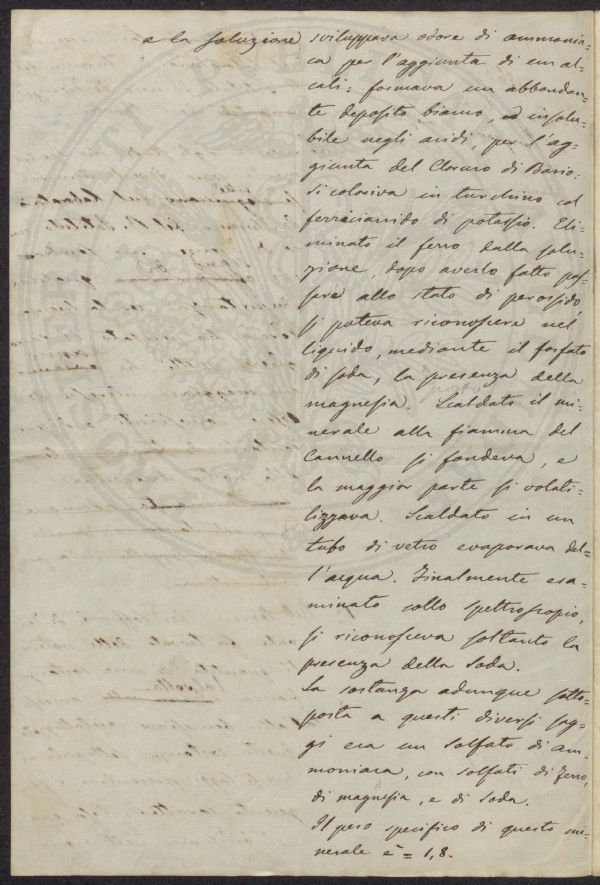 e la soluzione sviluppava odore di ammonia=
ca per l'aggiunta di un al=
cali: formava un abbondan=
te deposito bianco, ed insolu=
bile negli acidi, per l'ag=
giunta del Cloruro di Bario:
si coloriva in turchino col
ferrocianido di potassio. Eli=
minato il ferro dalla solu=
zione, dopo averlo fatto pas=
sare allo stato di perossido,
si poteva riconoscere nel
liquido, mediante il fosfato
di soda, la presenza della
magnesia. Scaldato il mi=
nerale alla fiamma del
Cannello si fondeva, e
la maggior parte si volati=
lizzava. Scaldato in un
tubo di vetro evaporava del=
l'acqua. Finalmente esa=
minato collo spettroscopio,
si riconosceva soltanto la
presenza della Soda.
La sostanza adunque sotto=
posta a questi diversi sag=
gi era un solfato di am=
moniaca, con solfati di ferro,
di magnesia, e di soda.
Il peso specifico di questo mi=
nerale è = 1,8.